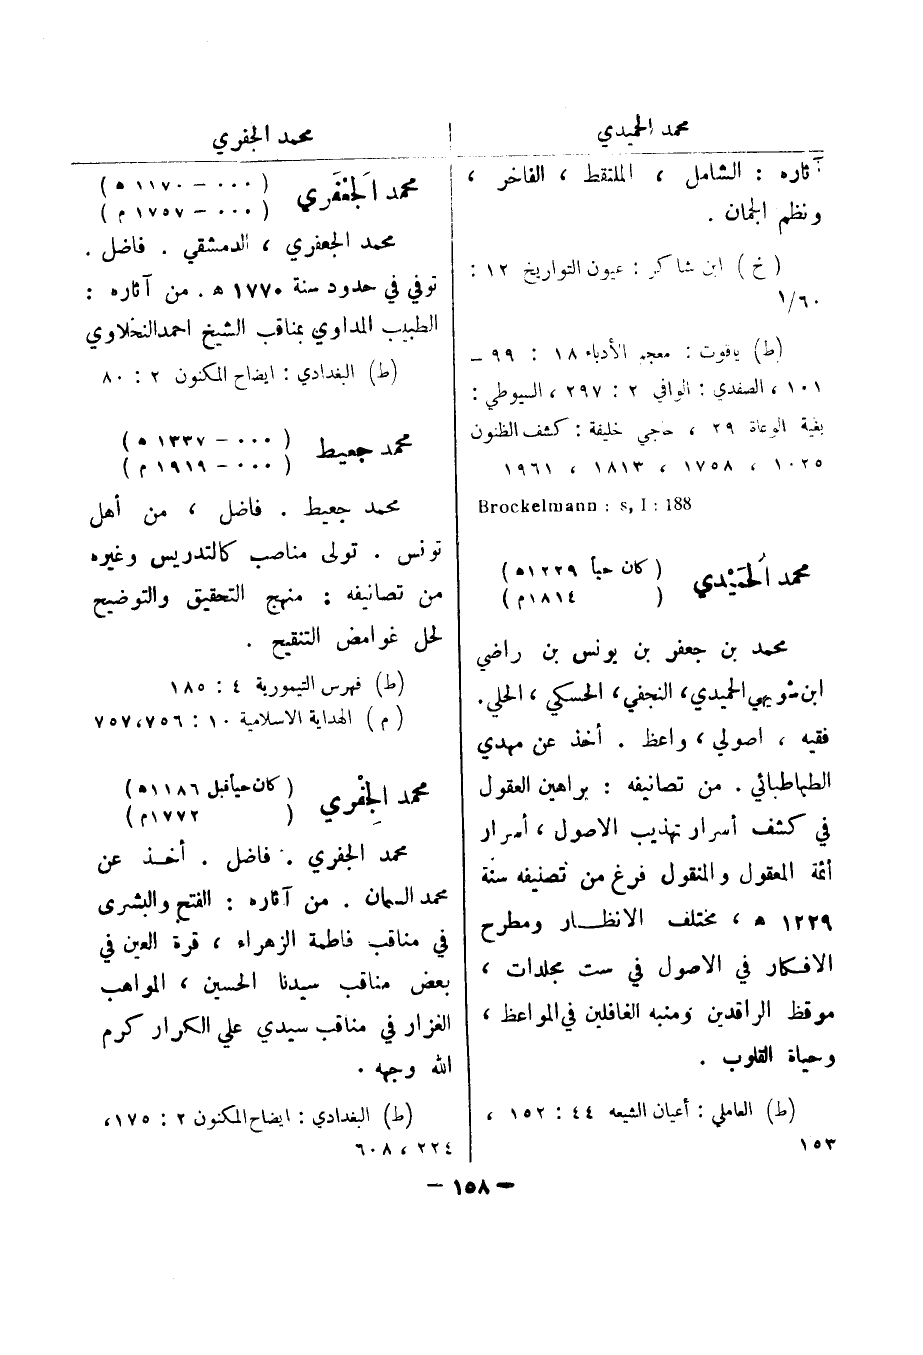 محمد الحميدي
محمد الجفري
آثاره : الشامل ، الملتقط ، الفاخر ،
ونظم الجمان .
( خ ) ابن شاكر : عيون التواريخ ١٢ :
١/٦٠
(ط) ياقوت : معجم الأدباء ١٨ : ٩٩ –
١٠١ ، الصفدي : الوافي ٢ : ٢٩٧ ، السيوطي :
بغية الوعاة ٢٩ ، حاجي خليفة : كشف الظنون
١٠٢٥ ، ١٧٥٨ ، ١٨١٣ ، ١٩٦١
Brockelmann : s, I : 188
محمد الحُمَيْدي ( كان حياً ١٢٢٩ ه )
( ١٨١٤ م )
محمد بن جعفر بن يونس بن راضي
ابن شويهي الحميدي ، النجفي ، الحسكي ، الحلي .
فقيه ، اصولي ، واعظ . أخذ عن مهدي
الطباطبائي . من تصانيفه : براهين العقول
في كشف أسرار تهذيب الاصول ، أسرار
أئمة المعقول والمنقول فرغ من تصنيفه سنة
١٢٢٩ ه ، مختلف الانظار ومطرح
الافكار في الاصول في ست مجلدات ،
موقظ الراقدين ومنبه الغافلين في المواعظ ،
وحياة القلوب .
(ط) العاملي : أعيان الشيعه ٤٤ : ١٥٢ ،
١٥٣
محمد الجَعْفَري ( ٠٠٠ – ١١٧٠ ه )
( ٠٠٠ – ١٧٥٧ م )
محمد الجعفري ، الدمشقي . فاضل .
توفي في حدود سنة ١٧٧٠ ه . من آثاره :
الطبيب المداوي بمناقب الشيخ احمد النخلاوي
(ط) البغدادي : ايضاح المكنون ٢ : ٨٠
محمد جعيط ( ٠٠٠ – ١٣٣٧ ه )
( ٠٠٠ – ١٩١٩ م )
محمد جعيط . فاضل ، من أهل
تونس . تولى مناصب كالتدريس وغيره
من تصانيفه : منهج التحقيق والتوضيح
لحل غوامض التنقيح .
(ط) فهرس التيمورية ٤ : ١٨٥
( م ) الهداية الاسلامية ١٠ : ٧٥٦ ، ٧٥٧
محمد الجِفْري ( كان حيا قبل ١١٨٦ ه )
( ١٧٧٢ م )
محمد الجفري . فاضل . أخذ عن
محمد السمان . من آثاره : الفتح والبشرى
في مناقب فاطمة الزهراء ، قرة العين في
بعض مناقب سيدنا الحسين ، المواهب
الغزار في مناقب سيدي علي الكرار كرم
الله وجهه .
(ط) البغدادي : ايضاح المكنون ٢ : ١٧٥ ،
٢٢٤ ، ٦٠٨
– ١٥٨ –